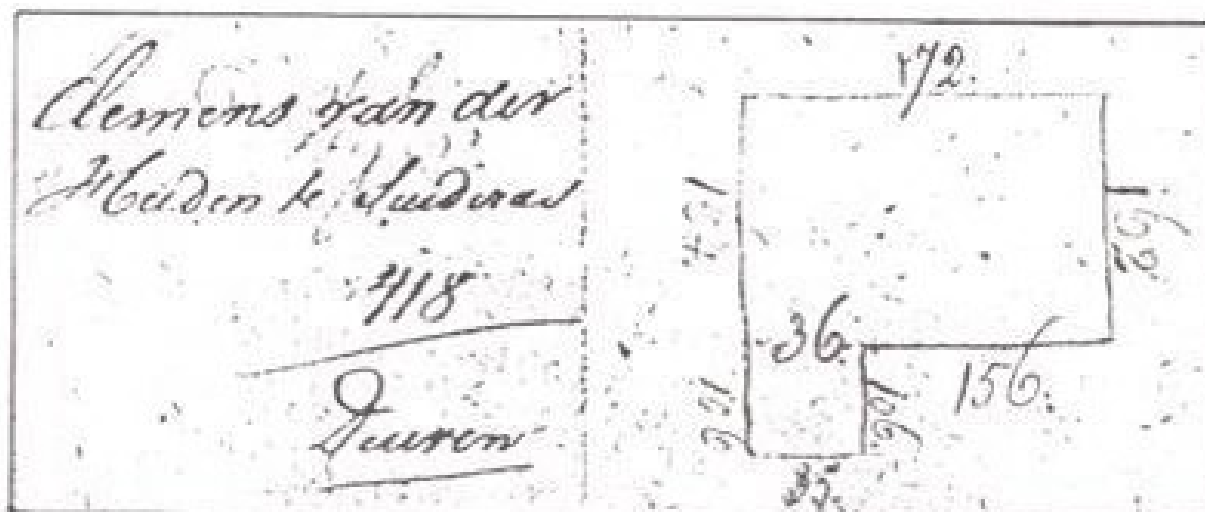 Clemens van der
Heiden te Suideras
418
Duiven
172.
162
36.
156.
166
35.